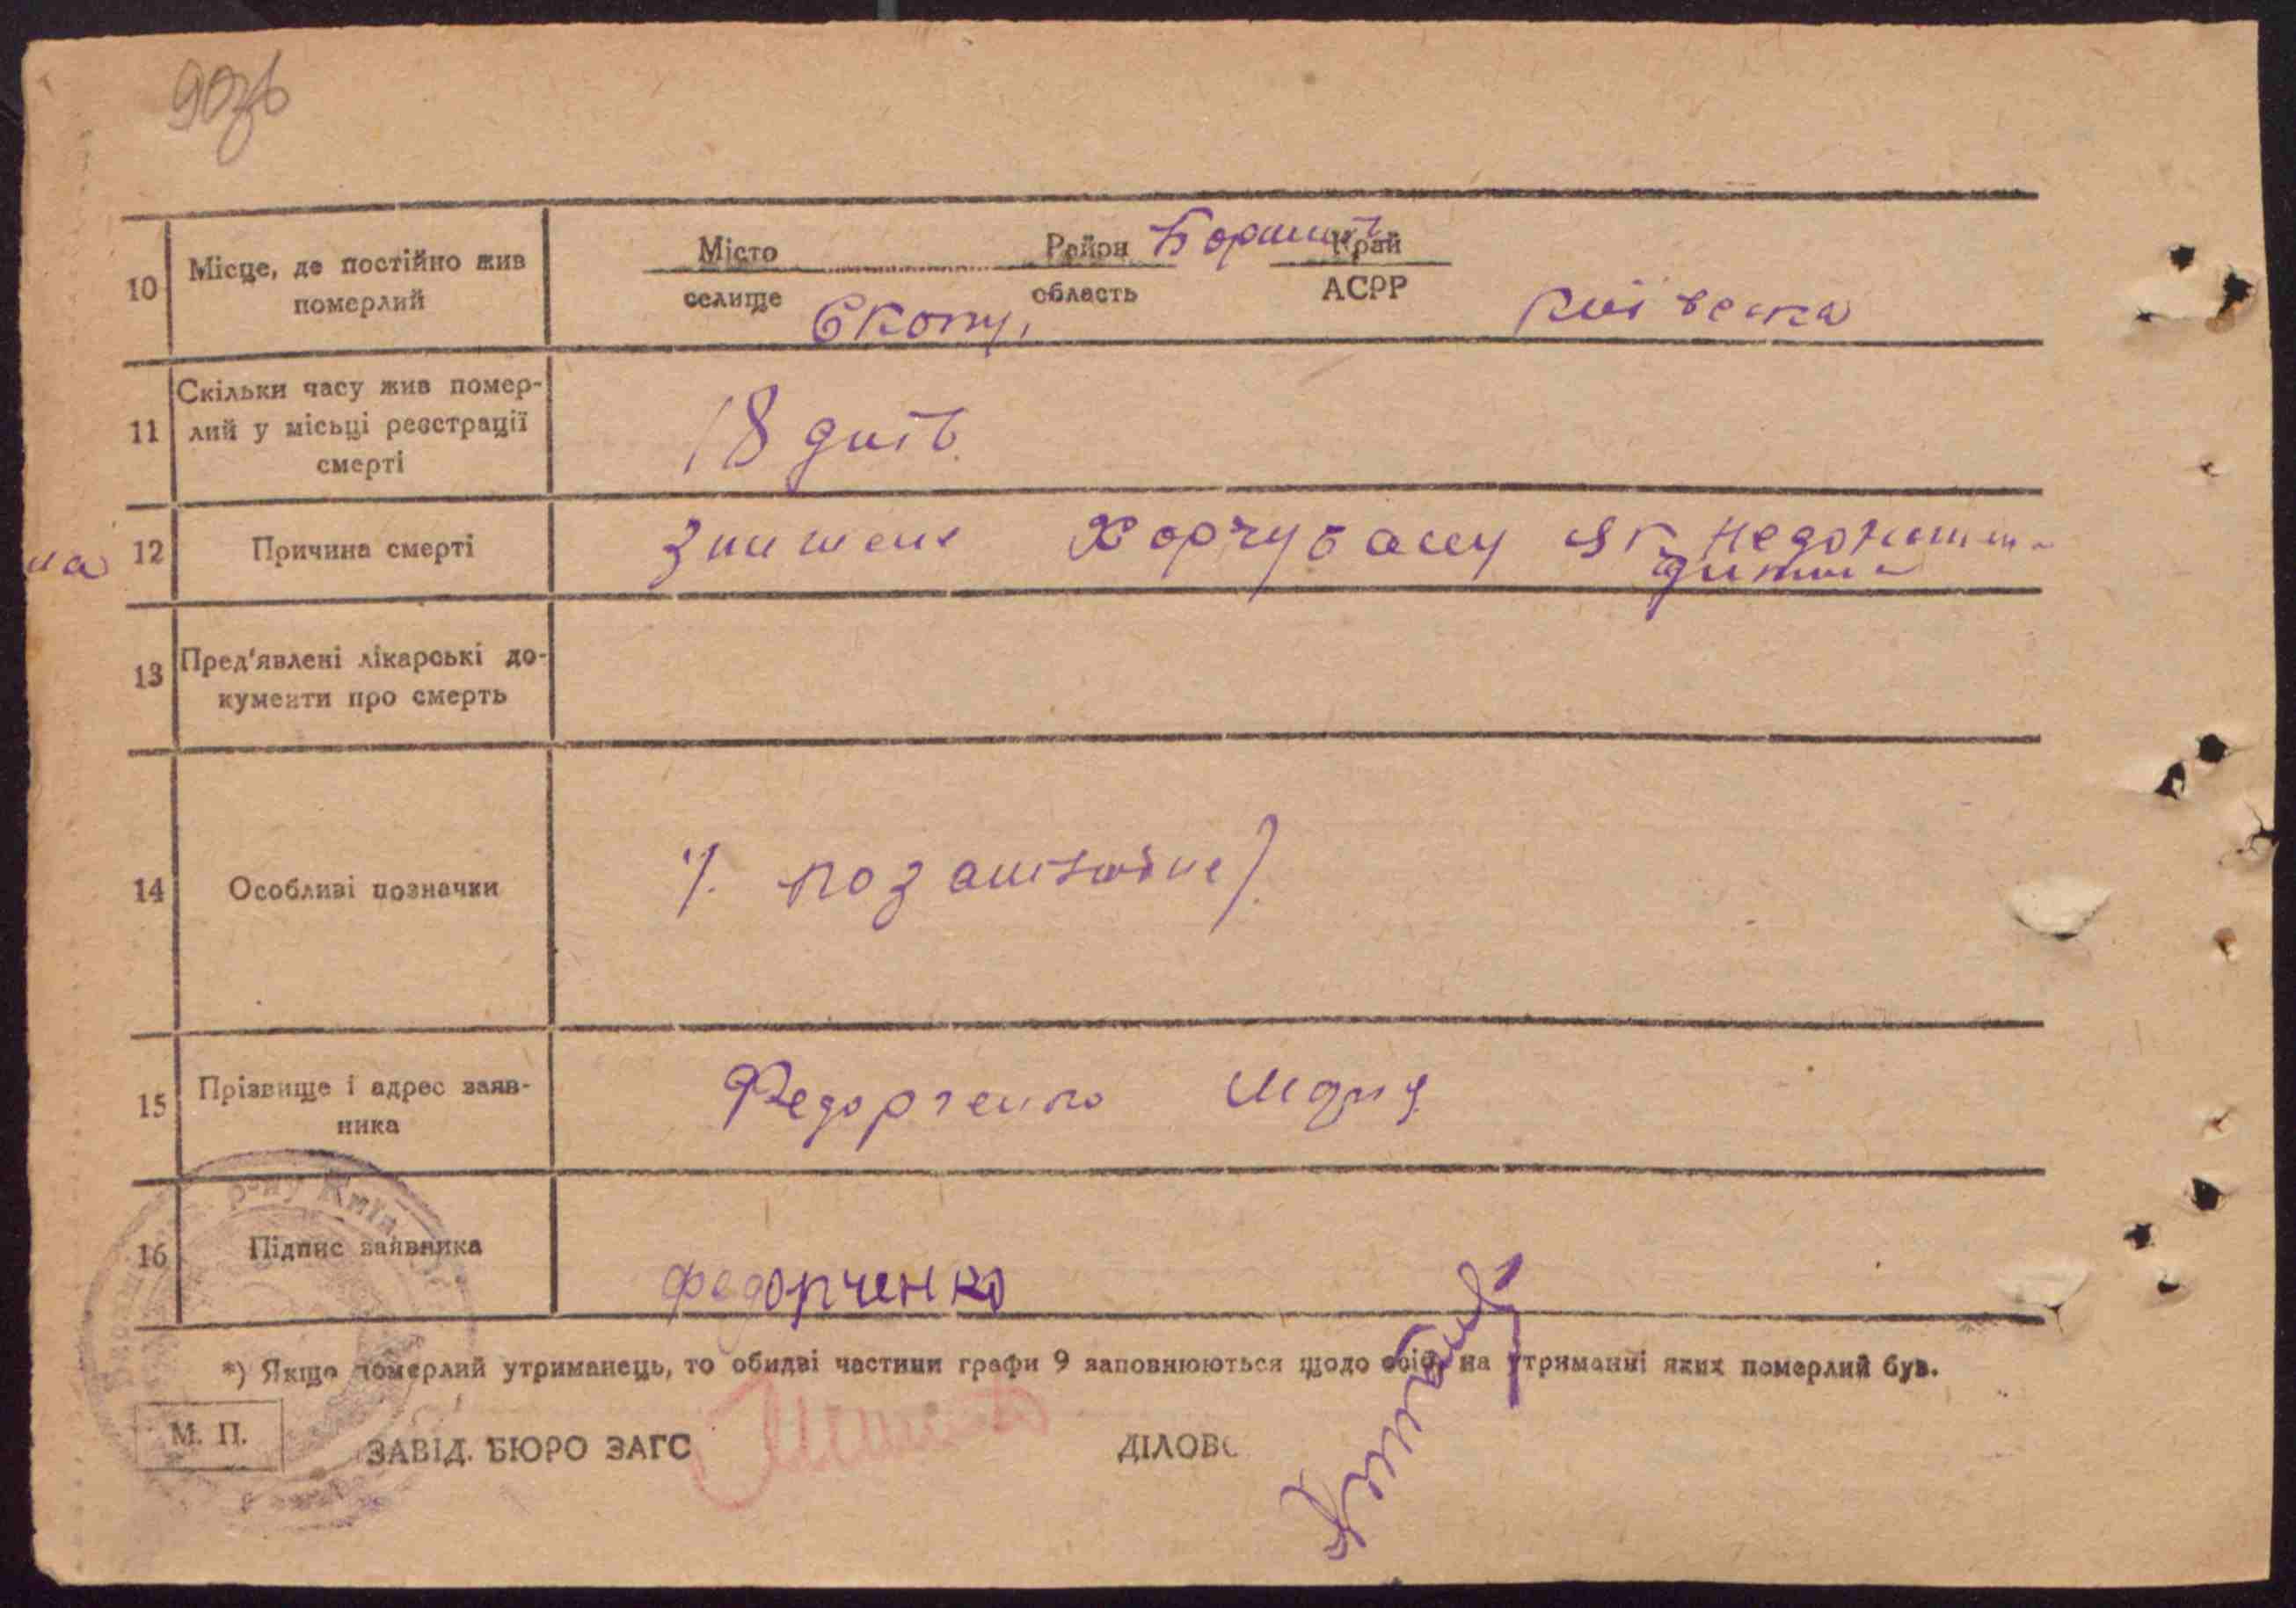 90зв
10 Місце, де постійно жив померлий
Місто Район Край
селище область АСРР
Скопц. Київська
11 Скільки часу жив помер-
лий у місьці реєстрації
смерті
18 днів.
12 Причина смерті
зниження харчуванн як
дитина
13 Пред'явлені лікарські до-
кументи про смерть
14 Особливі позначки
15 Прізвище і адрес заяв-
ника
Федорченко Марія
16 Підпис заявника
Федорченко
*) Якщо померлий утриманець, то обидві частини графи 9 заповнюються щодо осіб, на утриманні яких померлий був.
М. П.
ЗАВІД. БЮРО ЗАГС
ДІЛОВ